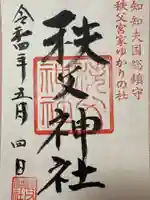 知知夫国総鎮守
秩父宮家ゆかりの社
秩父神社
令和四年五月四日